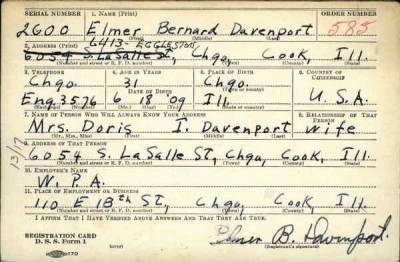 SERIAL NUMBER 1. NAME (Print) ORDER NUMBER
2600 Elmer Bernard Davenport 585
(First) (Middle) (Last)
6413- EGGLESTON
2. ADDRESS (Print)
6054 S. LaSalle St, Chgo, Cook, Ill.
(Number and street or R. F. D. number) (Town) (County) (State)
3. TELEPHONE 4. AGE IN YEARS 5. PLACE OF BIRTH 6. COUNTRY OF CITIZENSHIP
Chgo. 31 Chgo.
DATE OF BIRTH
Eng. 3576 6 18 09 Ill U.S.A.
7. NAME OF PERSON WHO WILL ALWAYS KNOW YOUR ADDRESS 8. RELATIONSHIP OF THAT PERSON
Mrs. Doris I. Davenport wife
9. ADDRESS OF THAT PERSON
6054 S. LaSalle St, Chgo, Cook, Ill.
(Number and street or R. F. D. number) (Town) (County) (State)
10. EMPLOYER'S NAME
W.P.A.
11. PLACE OF EMPLOYMENT OR BUSINESS
110 E 18th St, Chgo, Cook, Ill.
(Number and street or R. F. D. number) (Town) (County) (State)
I AFFIRM THAT I HAVE VERIFIED ABOVE ANSWERS AND THAT THEY ARE TRUE.
REGISTRATION CARD
D. S. S. Form 1
Elmer B. Davenport.
(Registrant's signature)